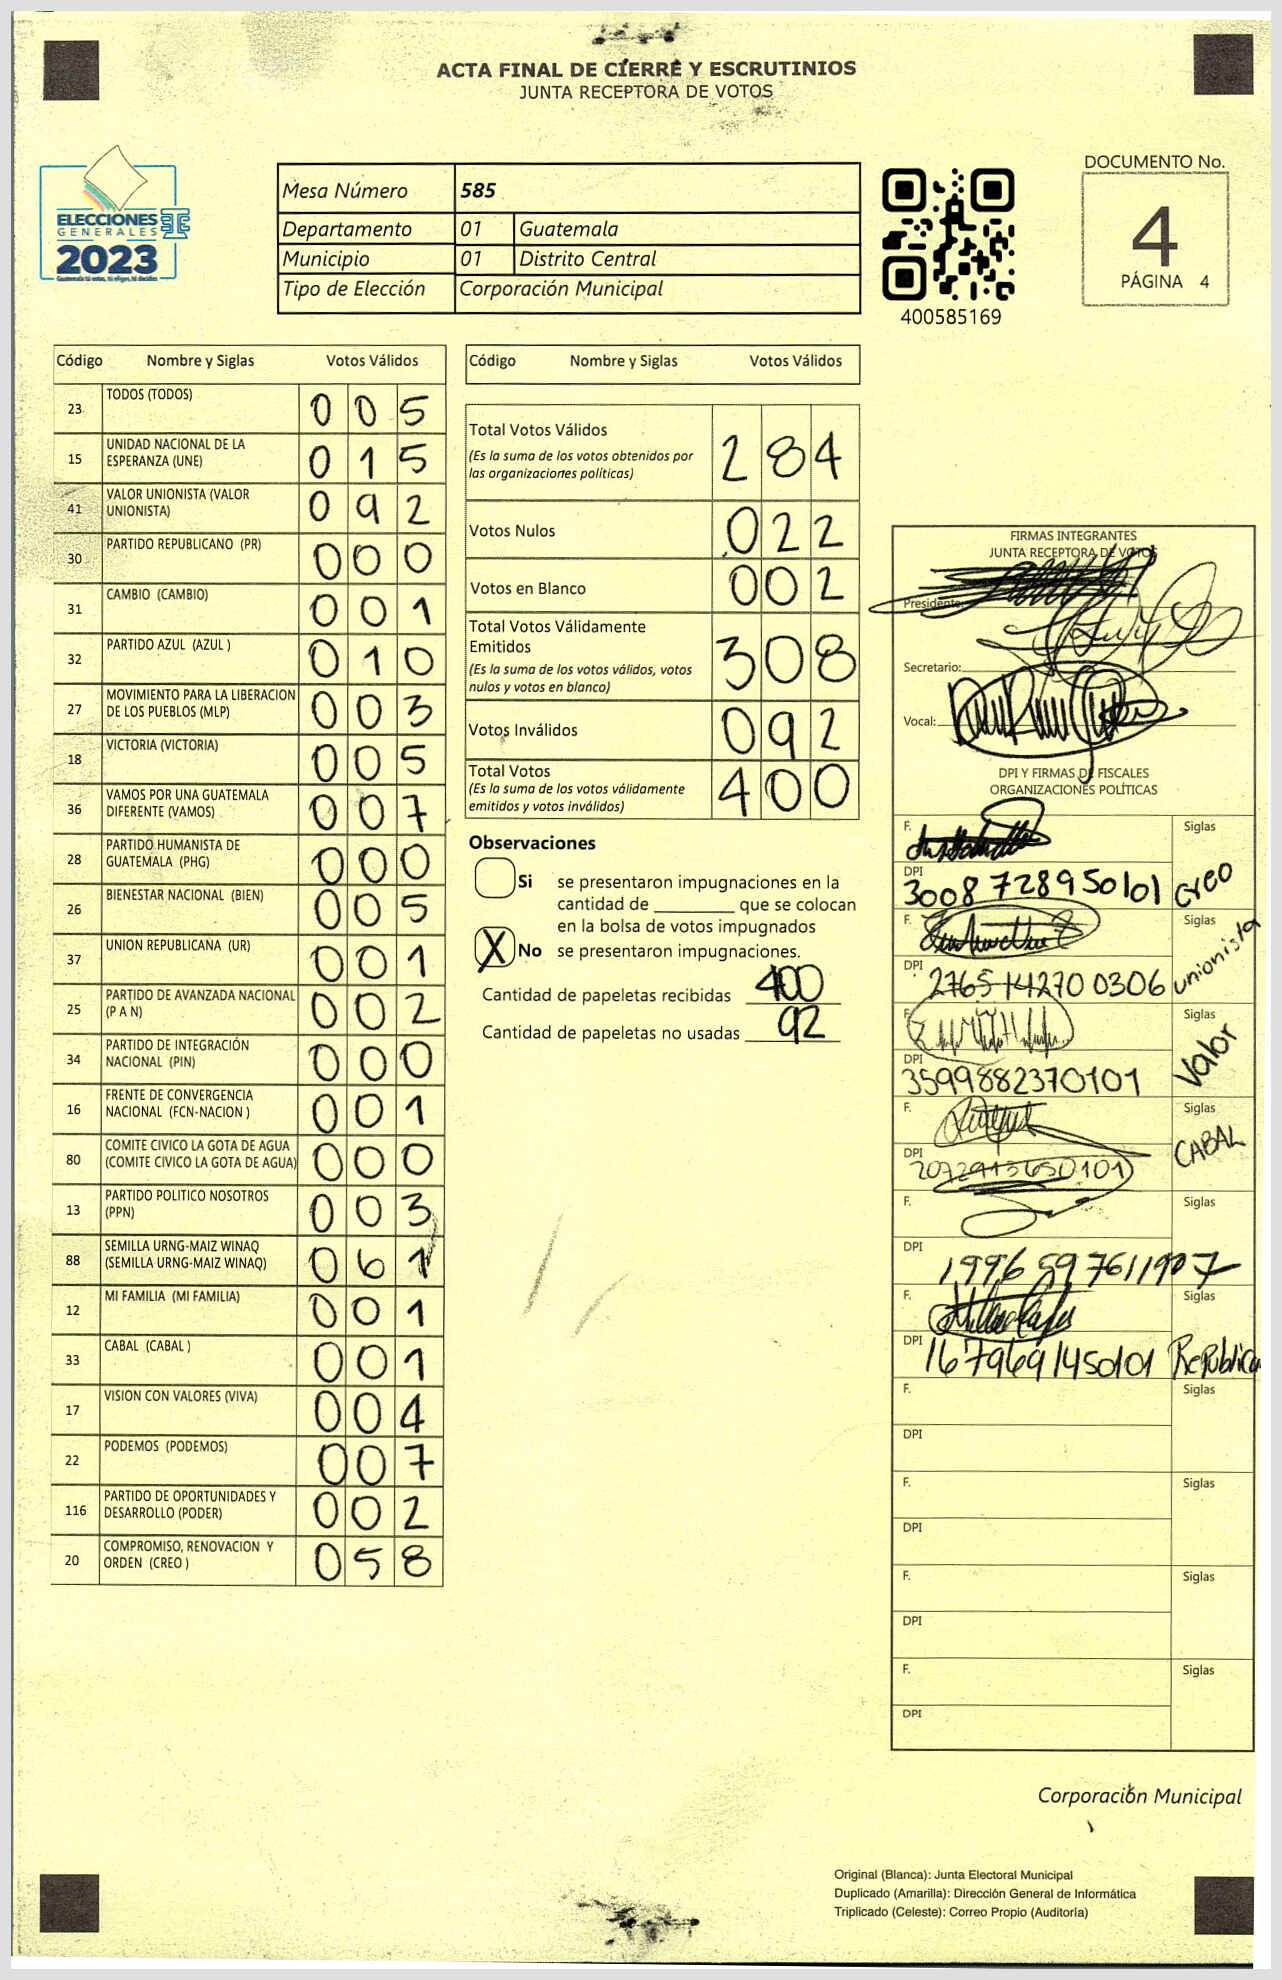 ACTA FINAL DE CIERRE Y ESCRUTINIOS
JUNTA RECEPTORA DE VOTOS
ELECCIONES
GENERALES
2023
Mesa Número 585
Departamento 01 Guatemala
Municipio 01 Distrito Central
Tipo de Elección Corporación Municipal
400585169
DOCUMENTO No.
4
PÁGINA 4
Código Nombre y Siglas Votos Válidos
23 TODOS (TODOS) 0 0 5
15 UNIDAD NACIONAL DE LA
ESPERANZA (UNE) 0 1 5
41 VALOR UNIONISTA (VALOR
UNIONISTA) 0 9 2
30 PARTIDO REPUBLICANO (PR) 0 0 0
31 CAMBIO (CAMBIO) 0 0 1
32 PARTIDO AZUL (AZUL ) 0 1 0
27 MOVIMIENTO PARA LA LIBERACION
DE LOS PUEBLOS (MLP) 0 0 3
18 VICTORIA (VICTORIA) 0 0 5
36 VAMOS POR UNA GUATEMALA
DIFERENTE (VAMOS) 0 0 7
28 PARTIDO HUMANISTA DE
GUATEMALA (PHG) 0 0 0
26 BIENESTAR NACIONAL (BIEN) 0 0 5
37 UNION REPUBLICANA (UR) 0 0 1
25 PARTIDO DE AVANZADA NACIONAL
(P A N) 0 0 2
34 PARTIDO DE INTEGRACIÓN
NACIONAL (PIN) 0 0 0
16 FRENTE DE CONVERGENCIA
NACIONAL (FCN-NACION ) 0 0 1
80 COMITE CIVICO LA GOTA DE AGUA
(COMITE CIVICO LA GOTA DE AGUA) 0 0 0
13 PARTIDO POLITICO NOSOTROS
(PPN) 0 0 3
88 SEMILLA URNG-MAIZ WINAQ
(SEMILLA URNG-MAIZ WINAQ) 0 6 1
12 MI FAMILIA (MI FAMILIA) 0 0 1
33 CABAL (CABAL ) 0 0 1
17 VISION CON VALORES (VIVA) 0 0 4
22 PODEMOS (PODEMOS) 0 0 7
116 PARTIDO DE OPORTUNIDADES Y
DESARROLLO (PODER) 0 0 2
20 COMPROMISO, RENOVACION Y
ORDEN (CREO ) 0 5 8
Código Nombre y Siglas Votos Válidos
Total Votos Válidos
(Es la suma de los votos obtenidos por
las organizaciones políticas) 2 8 4
Votos Nulos 0 2 2
Votos en Blanco 0 0 2
Total Votos Válidamente
Emitidos
(Es la suma de los votos válidos, votos
nulos y votos en blanco) 3 0 8
Votos Inválidos 0 9 2
Total Votos
(Es la suma de los votos válidamente
emitidos y votos inválidos) 4 0 0
Observaciones
Si se presentaron impugnaciones en la
cantidad de ________ que se colocan
en la bolsa de votos impugnados
X No se presentaron impugnaciones.
Cantidad de papeletas recibidas 400
Cantidad de papeletas no usadas 92
FIRMAS INTEGRANTES
JUNTA RECEPTORA DE VOTOS
Presidente:
Secretario:
Vocal:
DPI Y FIRMAS DE FISCALES
ORGANIZACIONES POLÍTICAS
F. Siglas
DPI 3008 72895 0101 creo
F. Siglas
DPI 2765 14270 0306 unionista
F. Siglas
DPI 3599882370101 Valor
F. Siglas
DPI 2072913650101 CABAL
F. Siglas
DPI
F. Siglas
DPI 1679691450101 Republica
F. Siglas
DPI
F. Siglas
DPI
F. Siglas
DPI
F. Siglas
DPI
Corporación Municipal
Original (Blanca): Junta Electoral Municipal
Duplicado (Amarilla): Dirección General de Informática
Triplicado (Celeste): Correo Propio (Auditoría)